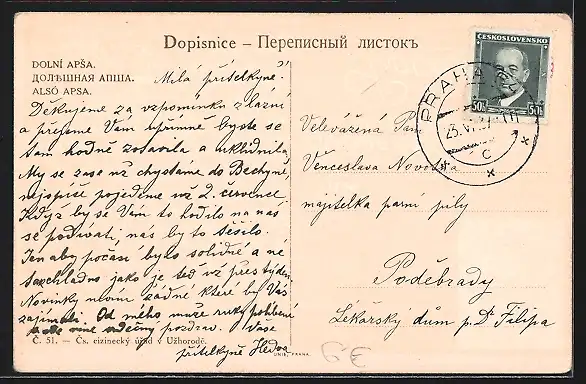 Dopisnice – Переписный листокъ
DOLNÍ APŠA.
ДОЛѢШНАЯ АПША.
ALSÓ APSA.
Milá přítelkyně!
Děkujeme za vzpomínku z lázní
a přejeme Vám upřímně byste se
tam hodně zotavila a uklidnila.
My se zase už chystáme do Bechyně,
nejspíše pojedeme už 2. července.
Když by se Vám to hodilo na nás
se podívati, nás by to těšilo.
Jen aby počasí bylo solidné a né
tak chladno jako je teď už přes týden.
Novinky nevím žádné které by Vás
zajímali. Od mého muže ruky políbení
a ode mne srdečný pozdrav. Vaše
přítelkyně Heďva
Č. 51. – Čs. cizinecký úřad v Užhorodě.
UNIE, PRAHA
ČESKOSLOVENSKO
50h 50h
PRAHA
23.VI.37
C
Velevážená Paní
Věnceslava Novotná
majitelka parní pily
Poděbrady
Lékařský dům p. Dr Filipa